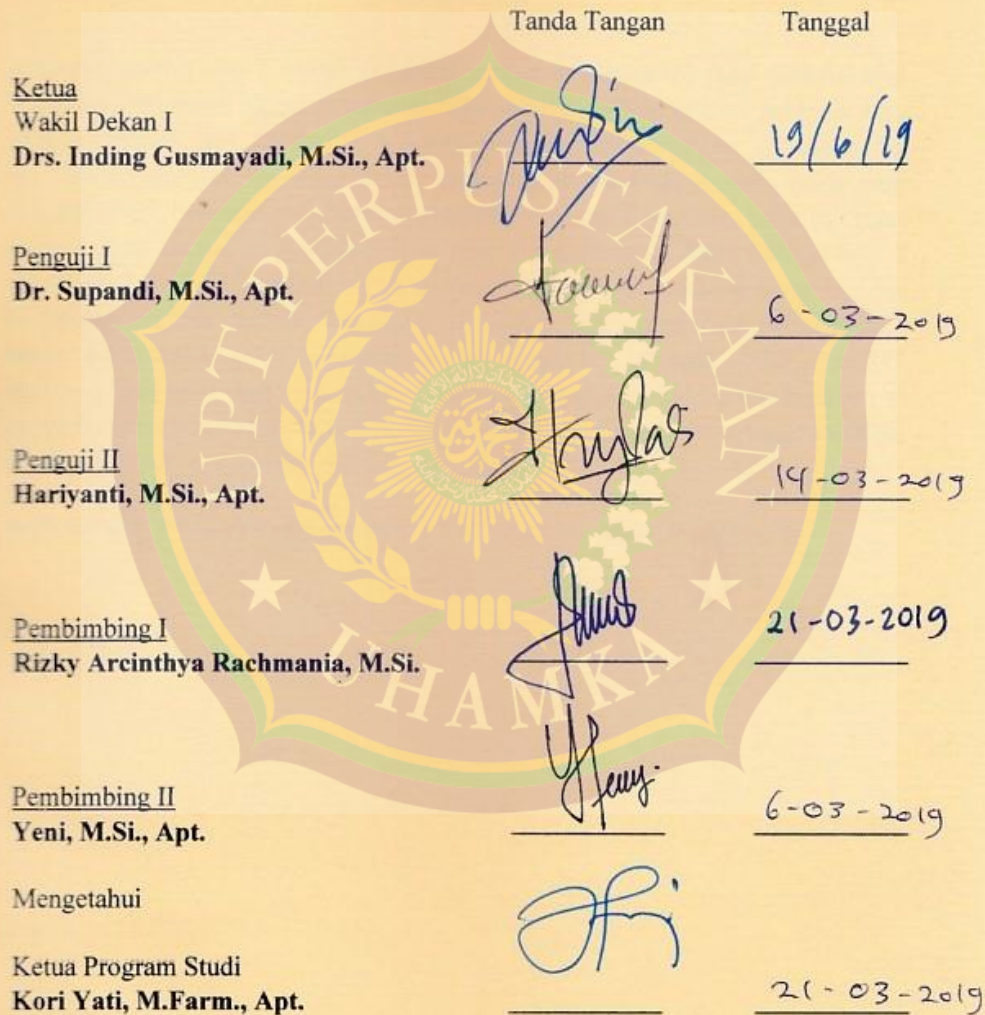 Tanda Tangan Tanggal
Ketua
Wakil Dekan I
Drs. Inding Gusmayadi, M.Si., Apt. 19/6/19
Penguji I
Dr. Supandi, M.Si., Apt. 6-03-2019
Penguji II
Hariyanti, M.Si., Apt. 14-03-2019
Pembimbing I
Rizky Arcinthya Rachmania, M.Si. 21-03-2019
Pembimbing II
Yeni, M.Si., Apt. 6-03-2019
Mengetahui
Ketua Program Studi
Kori Yati, M.Farm., Apt. 21-03-2019
UPT PERPUSTAKAAN
UHAMKA